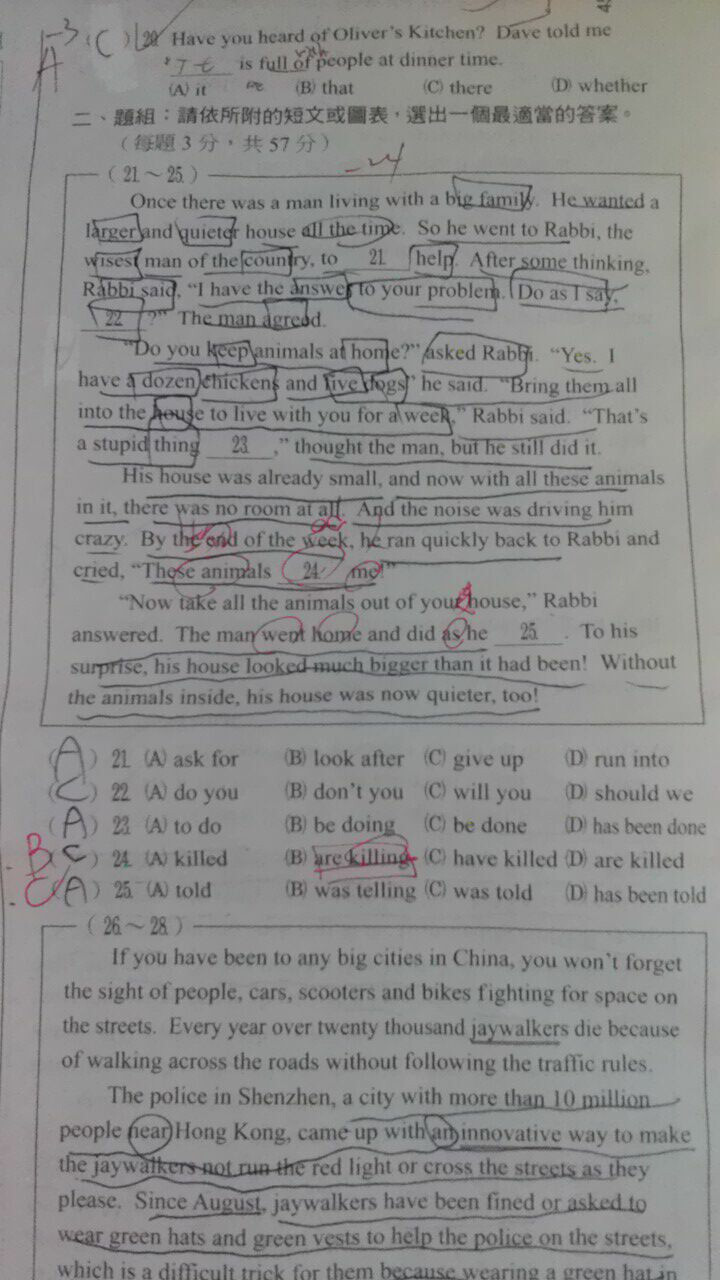 -3
A
(C) 20 Have you heard of Oliver's Kitchen? Dave told me
is full of people at dinner time.
(A) it (B) that (C) there (D) whether
二、題組：請依所附的短文或圖表，選出一個最適當的答案。
（每題3分，共57分）
-24
（21～25）
Once there was a man living with a big family. He wanted a
larger and quieter house all the time. So he went to Rabbi, the
wisest man of the country, to 21 help. After some thinking,
Rabbi said, “I have the answer to your problem. Do as I say,
22 ?” The man agreed.
“Do you keep animals at home?” asked Rabbi. “Yes. I
have a dozen chickens and five dogs” he said. “Bring them all
into the house to live with you for a week,” Rabbi said. “That's
a stupid thing 23 ,” thought the man, but he still did it.
His house was already small, and now with all these animals
in it, there was no room at all. And the noise was driving him
crazy. By the end of the week, he ran quickly back to Rabbi and
cried, “These animals 24 me!”
“Now take all the animals out of your house,” Rabbi
answered. The man went home and did as he 25 . To his
surprise, his house looked much bigger than it had been! Without
the animals inside, his house was now quieter, too!
(A) 21 (A) ask for (B) look after (C) give up (D) run into
(C) 22 (A) do you (B) don't you (C) will you (D) should we
(A) 23 (A) to do (B) be doing (C) be done (D) has been done
B (C) 24 (A) killed (B) are killing (C) have killed (D) are killed
C (A) 25 (A) told (B) was telling (C) was told (D) has been told
（26～28）
If you have been to any big cities in China, you won't forget
the sight of people, cars, scooters and bikes fighting for space on
the streets. Every year over twenty thousand jaywalkers die because
of walking across the roads without following the traffic rules.
The police in Shenzhen, a city with more than 10 million
people near Hong Kong, came up with an innovative way to make
the jaywalkers not run the red light or cross the streets as they
please. Since August, jaywalkers have been fined or asked to
wear green hats and green vests to help the police on the streets,
which is a difficult trick for them because wearing a green hat in